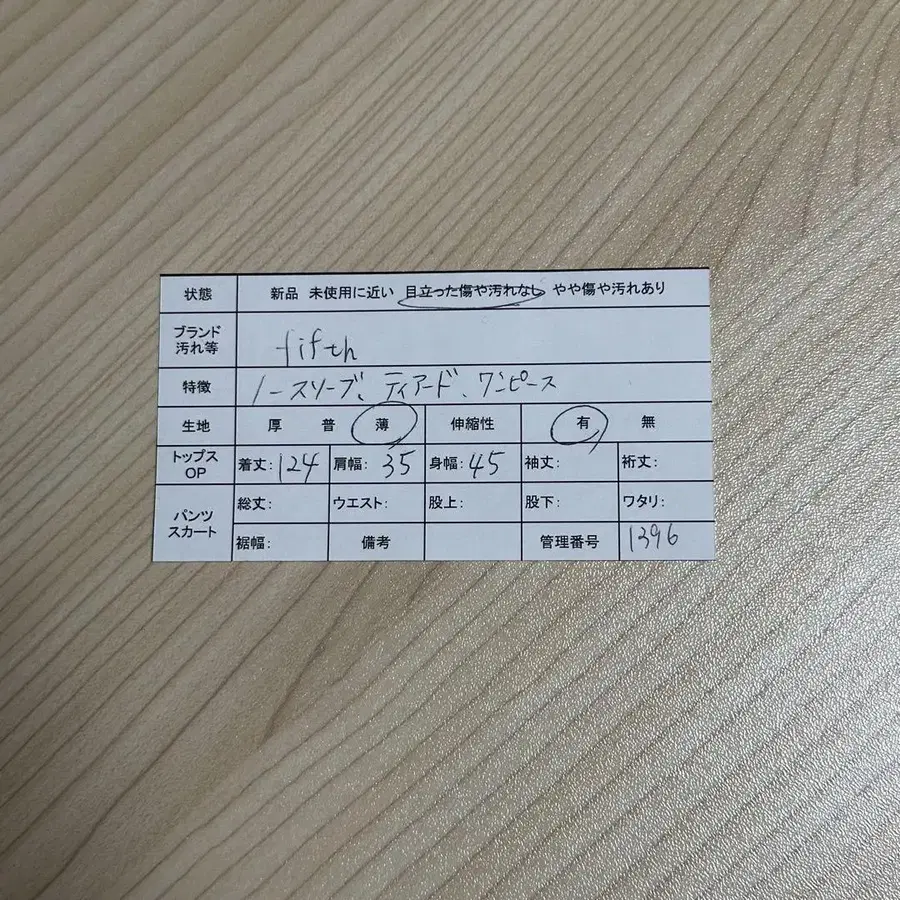 状態 新品 未使用に近い 目立った傷や汚れなし やや傷や汚れあり
ブランド
汚れ等 fifth
特徴 ノースリーブ、ティアード、ワンピース
生地 厚 普 薄 伸縮性 有 無
トップス
OP 着丈:124 肩幅:35 身幅:45 袖丈: 裄丈:
パンツ
スカート 総丈: ウエスト: 股上: 股下: ワタリ:
裾幅: 備考 管理番号 1396